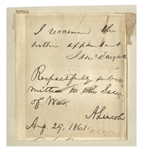 I recommend the
within appointment
Respectfully sub
mitted to the Sec
of War.
A. Lincoln
Aug. 29. 1861.